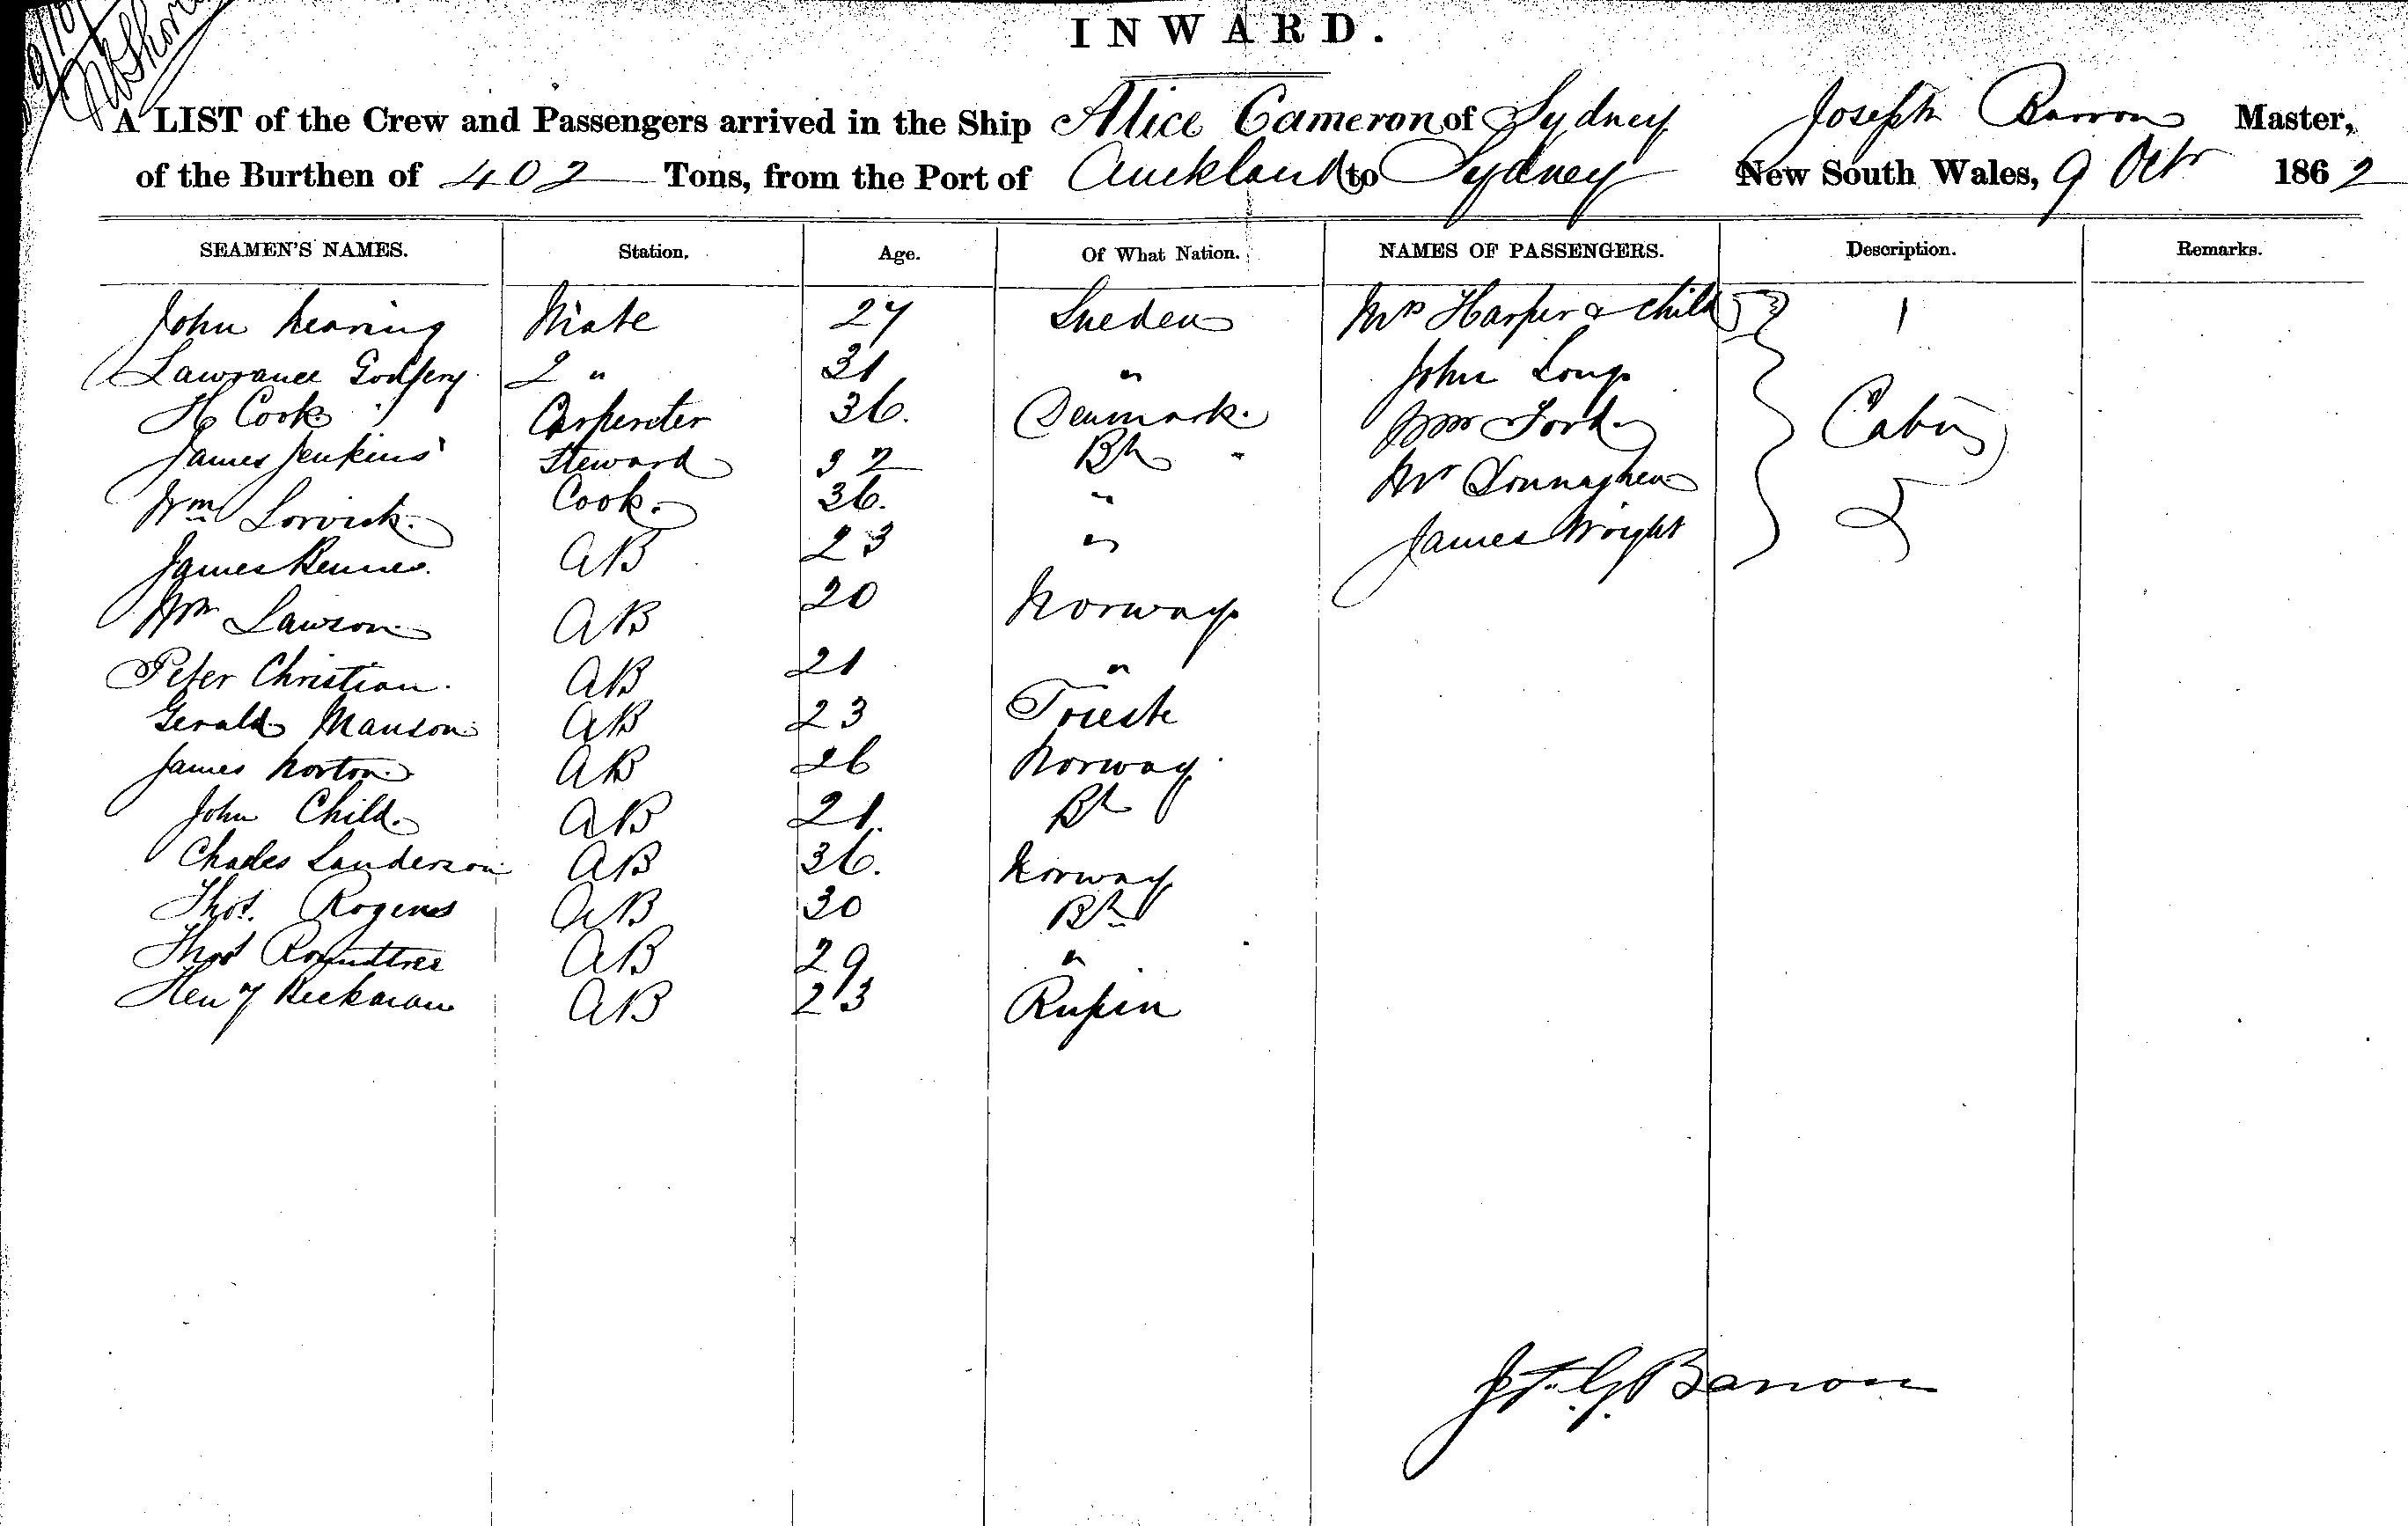 INWARD.
A LIST of the Crew and Passengers arrived in the Ship Alice Cameron of Sydney Joseph Barron Master,
of the Burthen of 402 Tons, from the Port of Auckland to Sydney New South Wales, 9 Octr 1862
SEAMEN'S NAMES. Station. Age. Of What Nation. NAMES OF PASSENGERS. Description. Remarks.
John Mate 27 Sweden Mrs Harper & child 1
Lawrance Godfery 2 " 31 " John Long
H Cook Carpenter 36. Denmark. Wm Ford Cabin
James Jenkins Steward 32 Bh " Mr Donnaghen
Wm Cook. 36. " James Wright
James Rennie AB 23 "
Wm Lawson AB 20 Norway
Peter Christian. AB 21 "
Gerald Manson AB 23 Trieste
James Norton AB 26 Norway
John Child. AB 21. Bh
Charles Sanderson AB 36. Norway
Thos. Rogers AB 30 Bh
Thos Roundtree AB 29 "
Heny Beckman AB 23
Barron